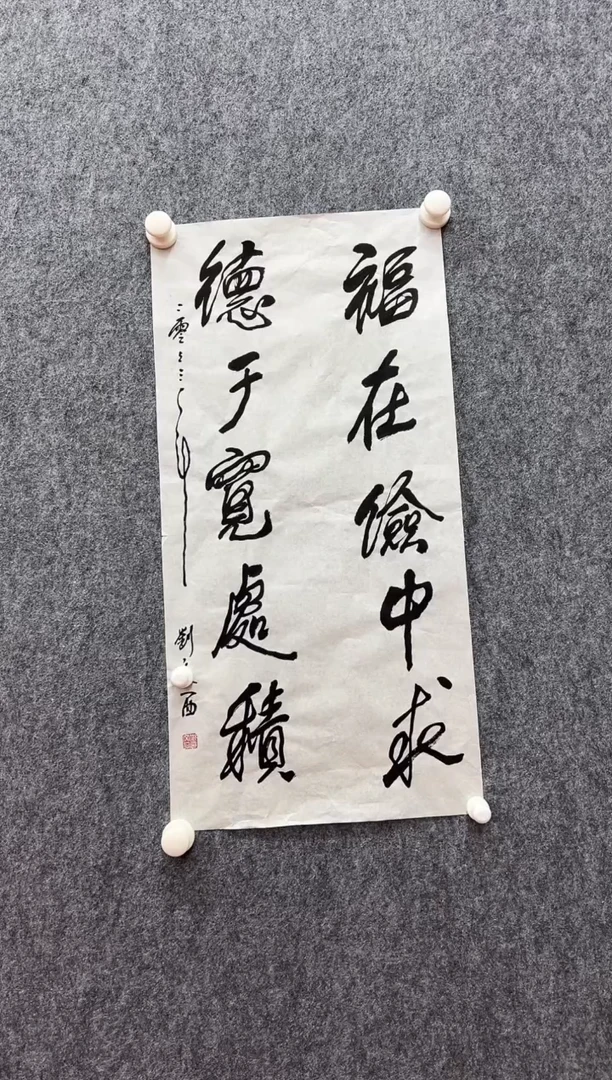 福在儉中求
德于寬處積
二零二三年
劉 酉